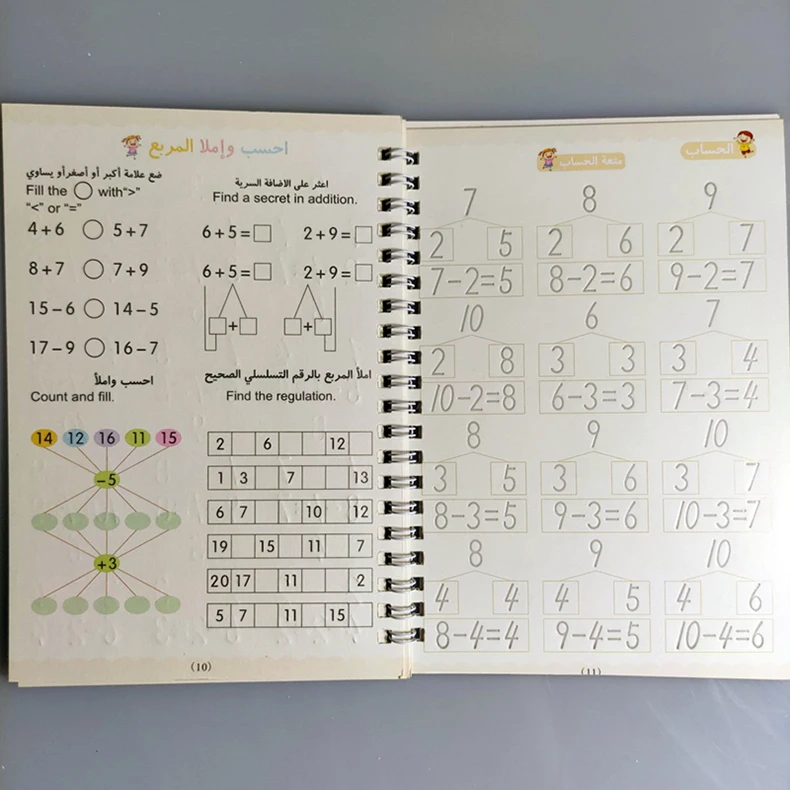 احسب وإملا المربع
ضع علامة أكبر أو أصغر أو يساوي
Fill the ◯ with“>”
“<” or “=”
4+6 ◯ 5+7
8+7 ◯ 7+9
15−6 ◯ 14−5
17−9 ◯ 16−7
اعثر على الاضافة السرية
Find a secret in addition.
6+5=□ 2+9=□
6+5=□ 2+9=□
□+□ □+□
احسب واملأ
Count and fill.
14 12 16 11 15
−5
+3
املأ المربع بالرقم التسلسلي الصحيح
Find the regulation.
2 6 12
1 3 7 13
6 7 10 12
19 15 11 7
20 17 11 2
5 7 11 15
(10)
الحساب
متعة الحساب
7 8 9
2 5 2 6 2 7
7−2=5 8−2=6 9−2=7
10 6 7
2 8 3 3 3 4
10−2=8 6−3=3 7−3=4
8 9 10
3 5 3 6 3 7
8−3=5 9−3=6 10−3=7
8 9 10
4 4 4 5 4 6
8−4=4 9−4=5 10−4=6
(11)